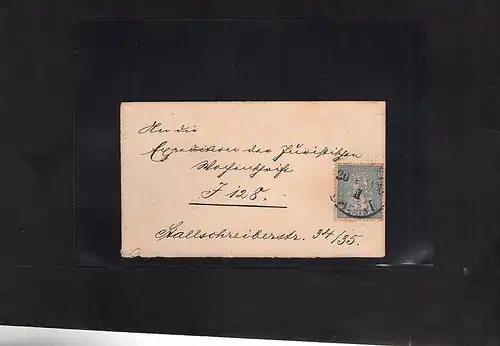 An die
Expedition der Juristischen
Wochenschrift
J 128.
Stallschreiberstr. 34/35.